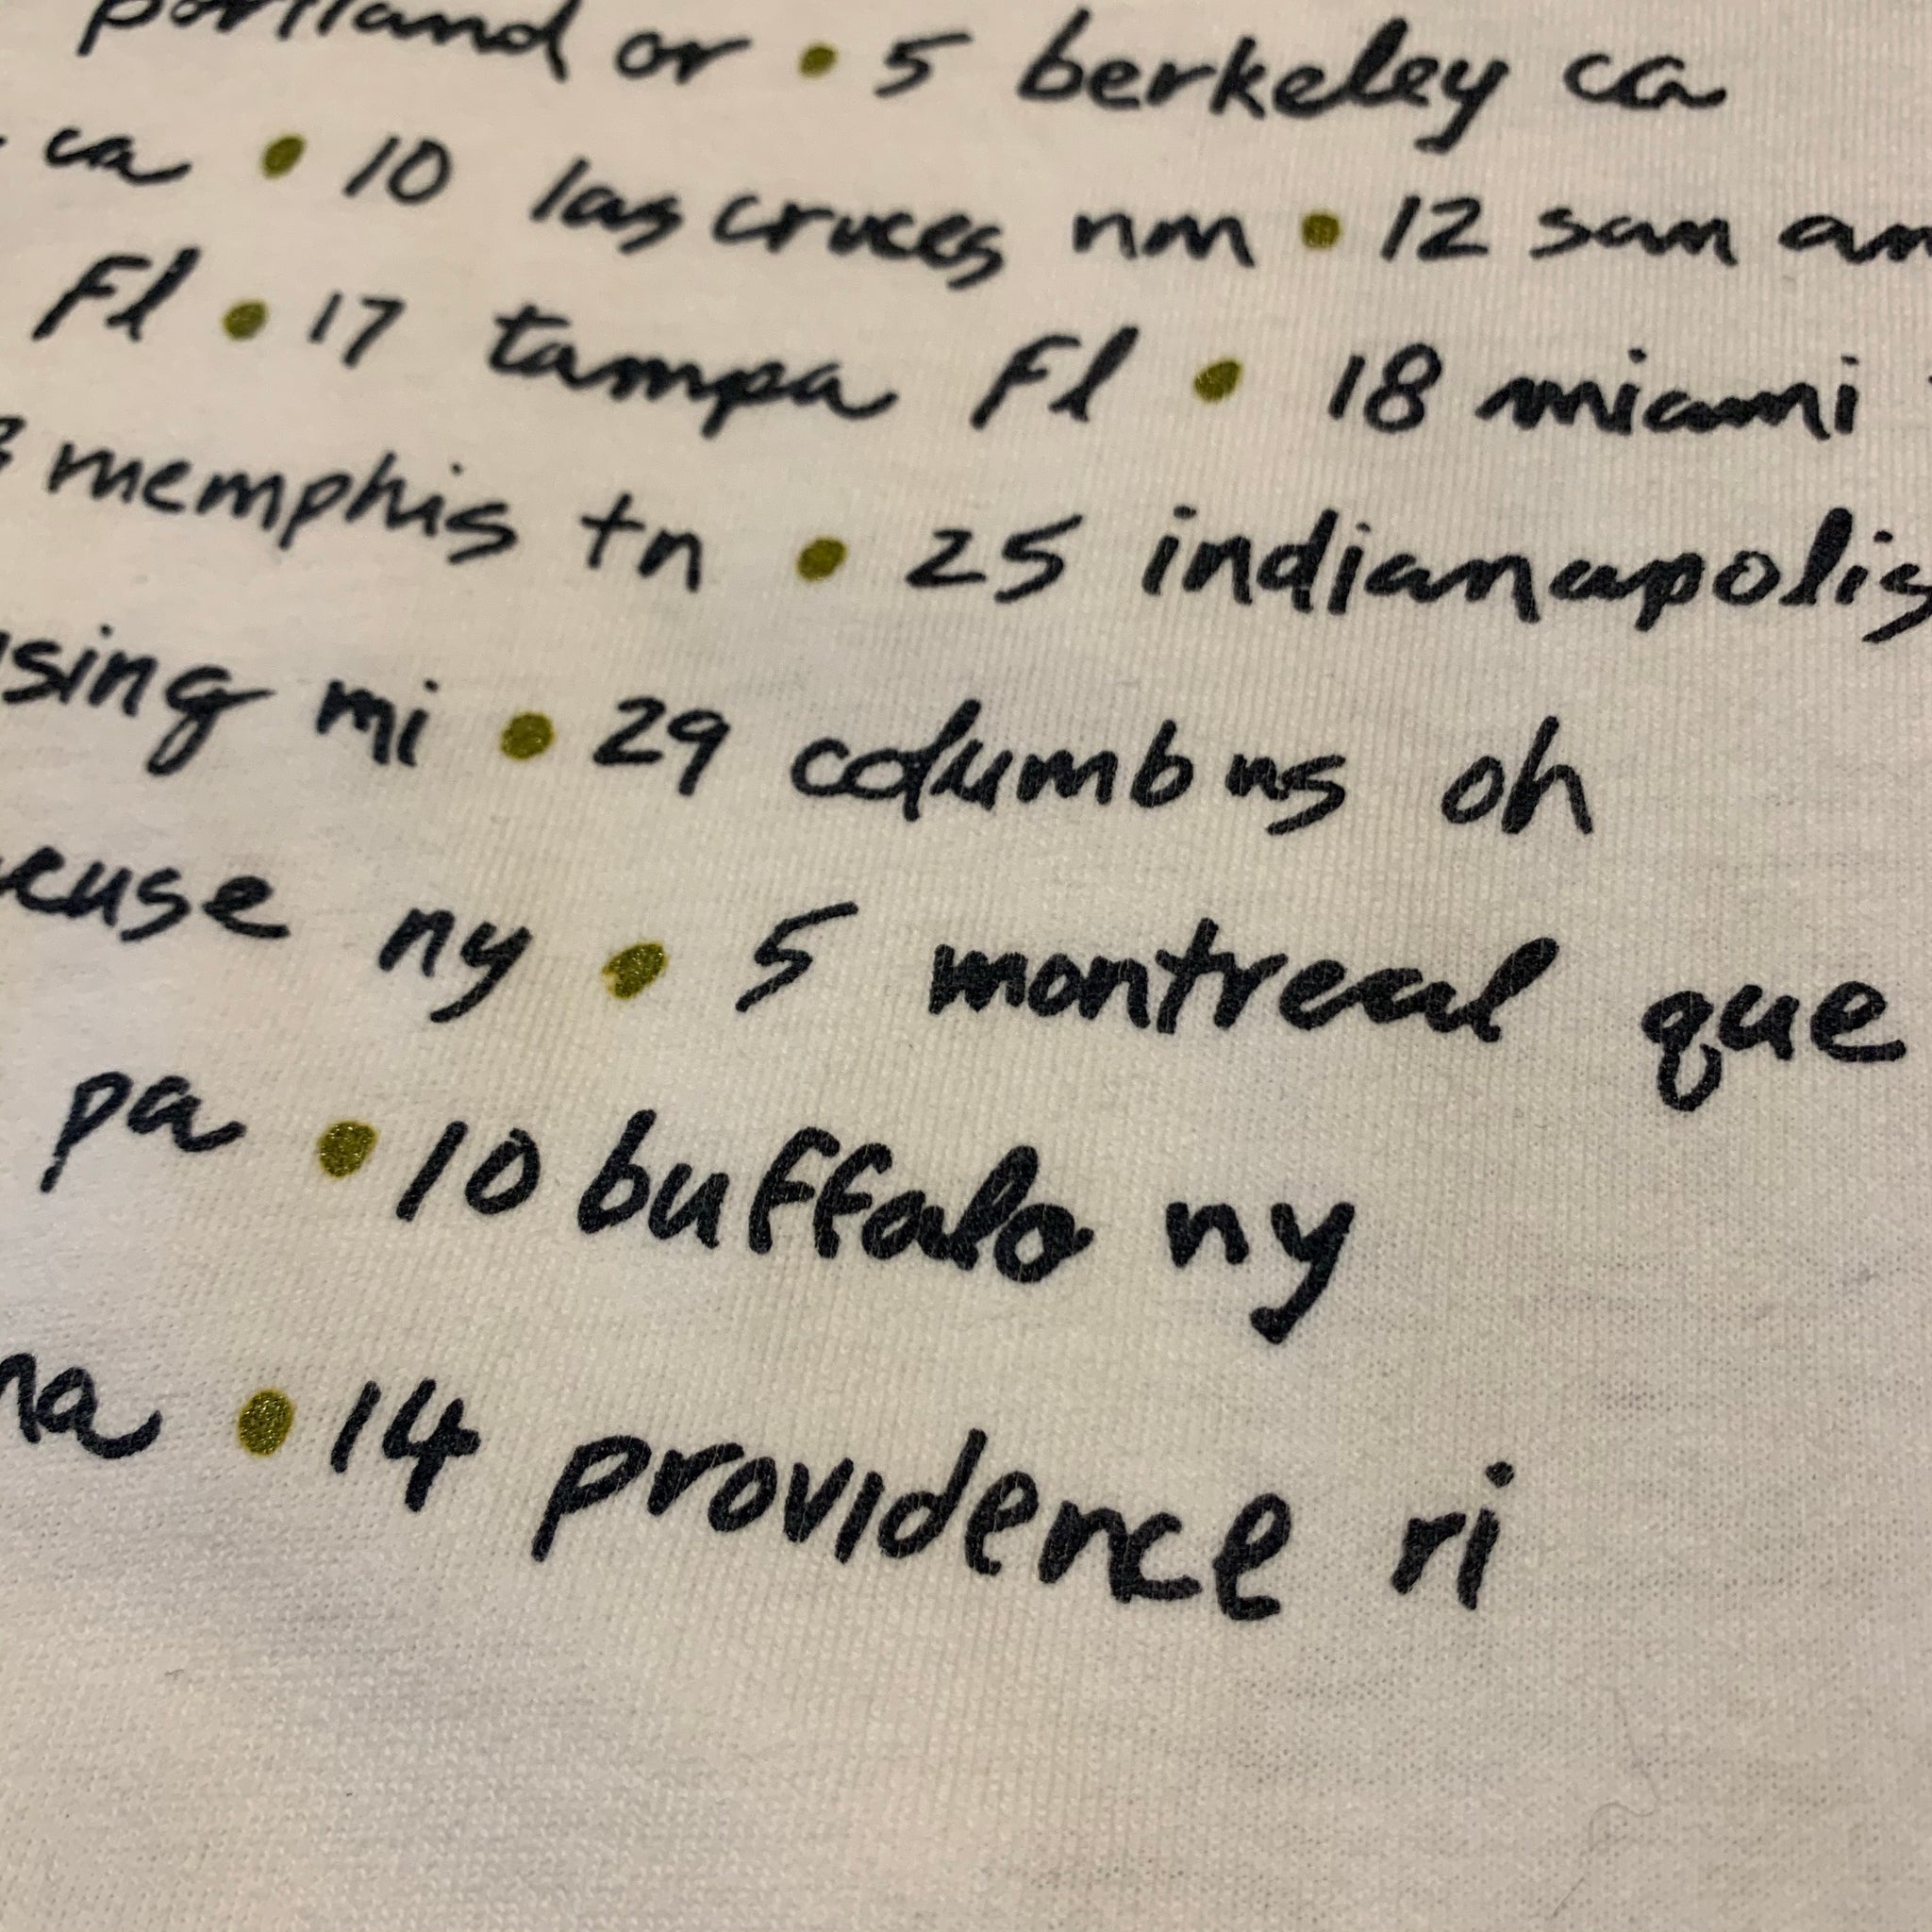 portland or • 5 berkeley ca
ca • 10 las cruces nm • 12 san an
Fl • 17 tampa Fl • 18 miami
memphis tn • 25 indianapolis
sing mi • 29 columbus oh
cuse ny • 5 montreal que
pa • 10 buffalo ny
na • 14 providence ri